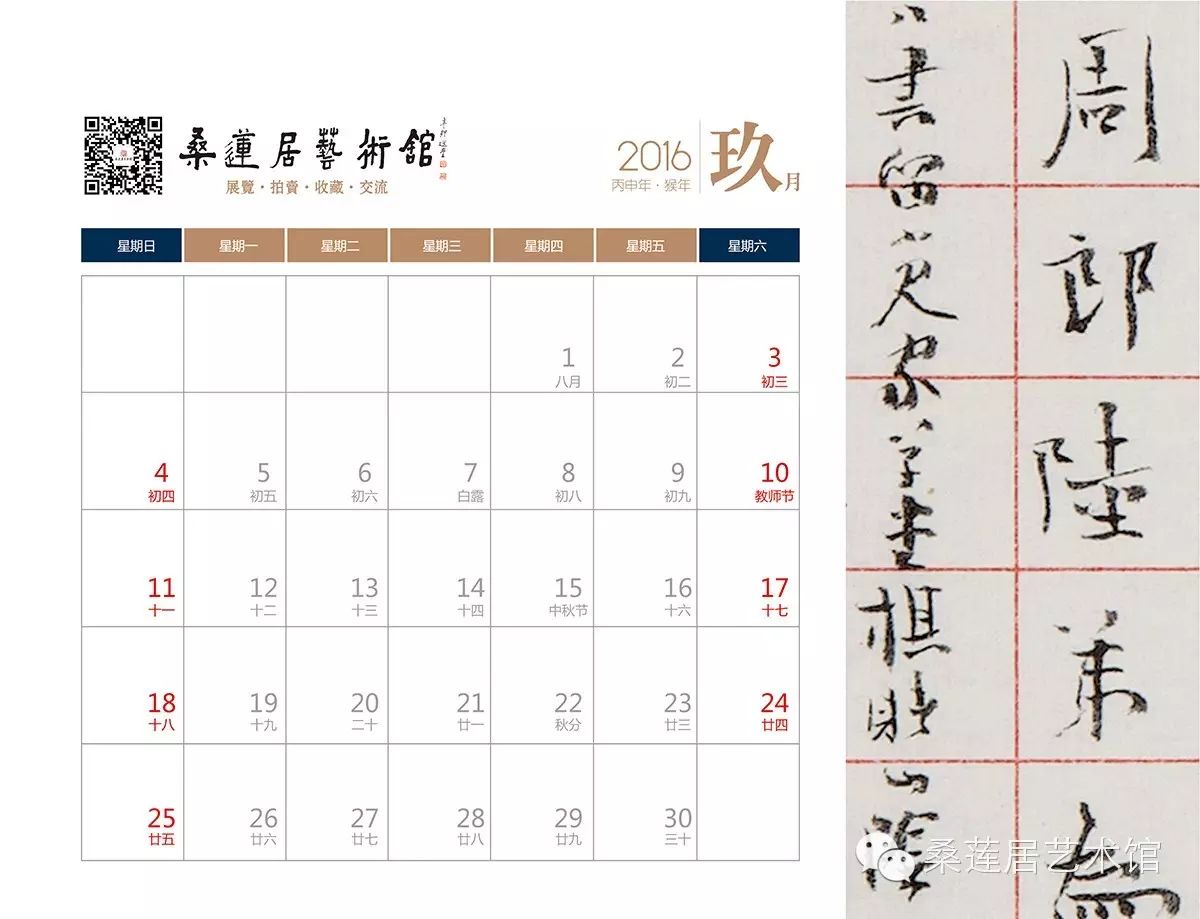 桑蓮居藝術館
展覽·拍賣·收藏·交流
2016
丙申年·猴年
玖月
星期日 星期一 星期二 星期三 星期四 星期五 星期六
1 2 3
八月 初二 初三
4 5 6 7 8 9 10
初四 初五 初六 白露 初八 初九 教师节
11 12 13 14 15 16 17
十一 十二 十三 十四 中秋节 十六 十七
18 19 20 21 22 23 24
十八 十九 二十 廿一 秋分 廿三 廿四
25 26 27 28 29 30
廿五 廿六 廿七 廿八 廿九 三十
周郎陸弟為
桑莲居艺术馆